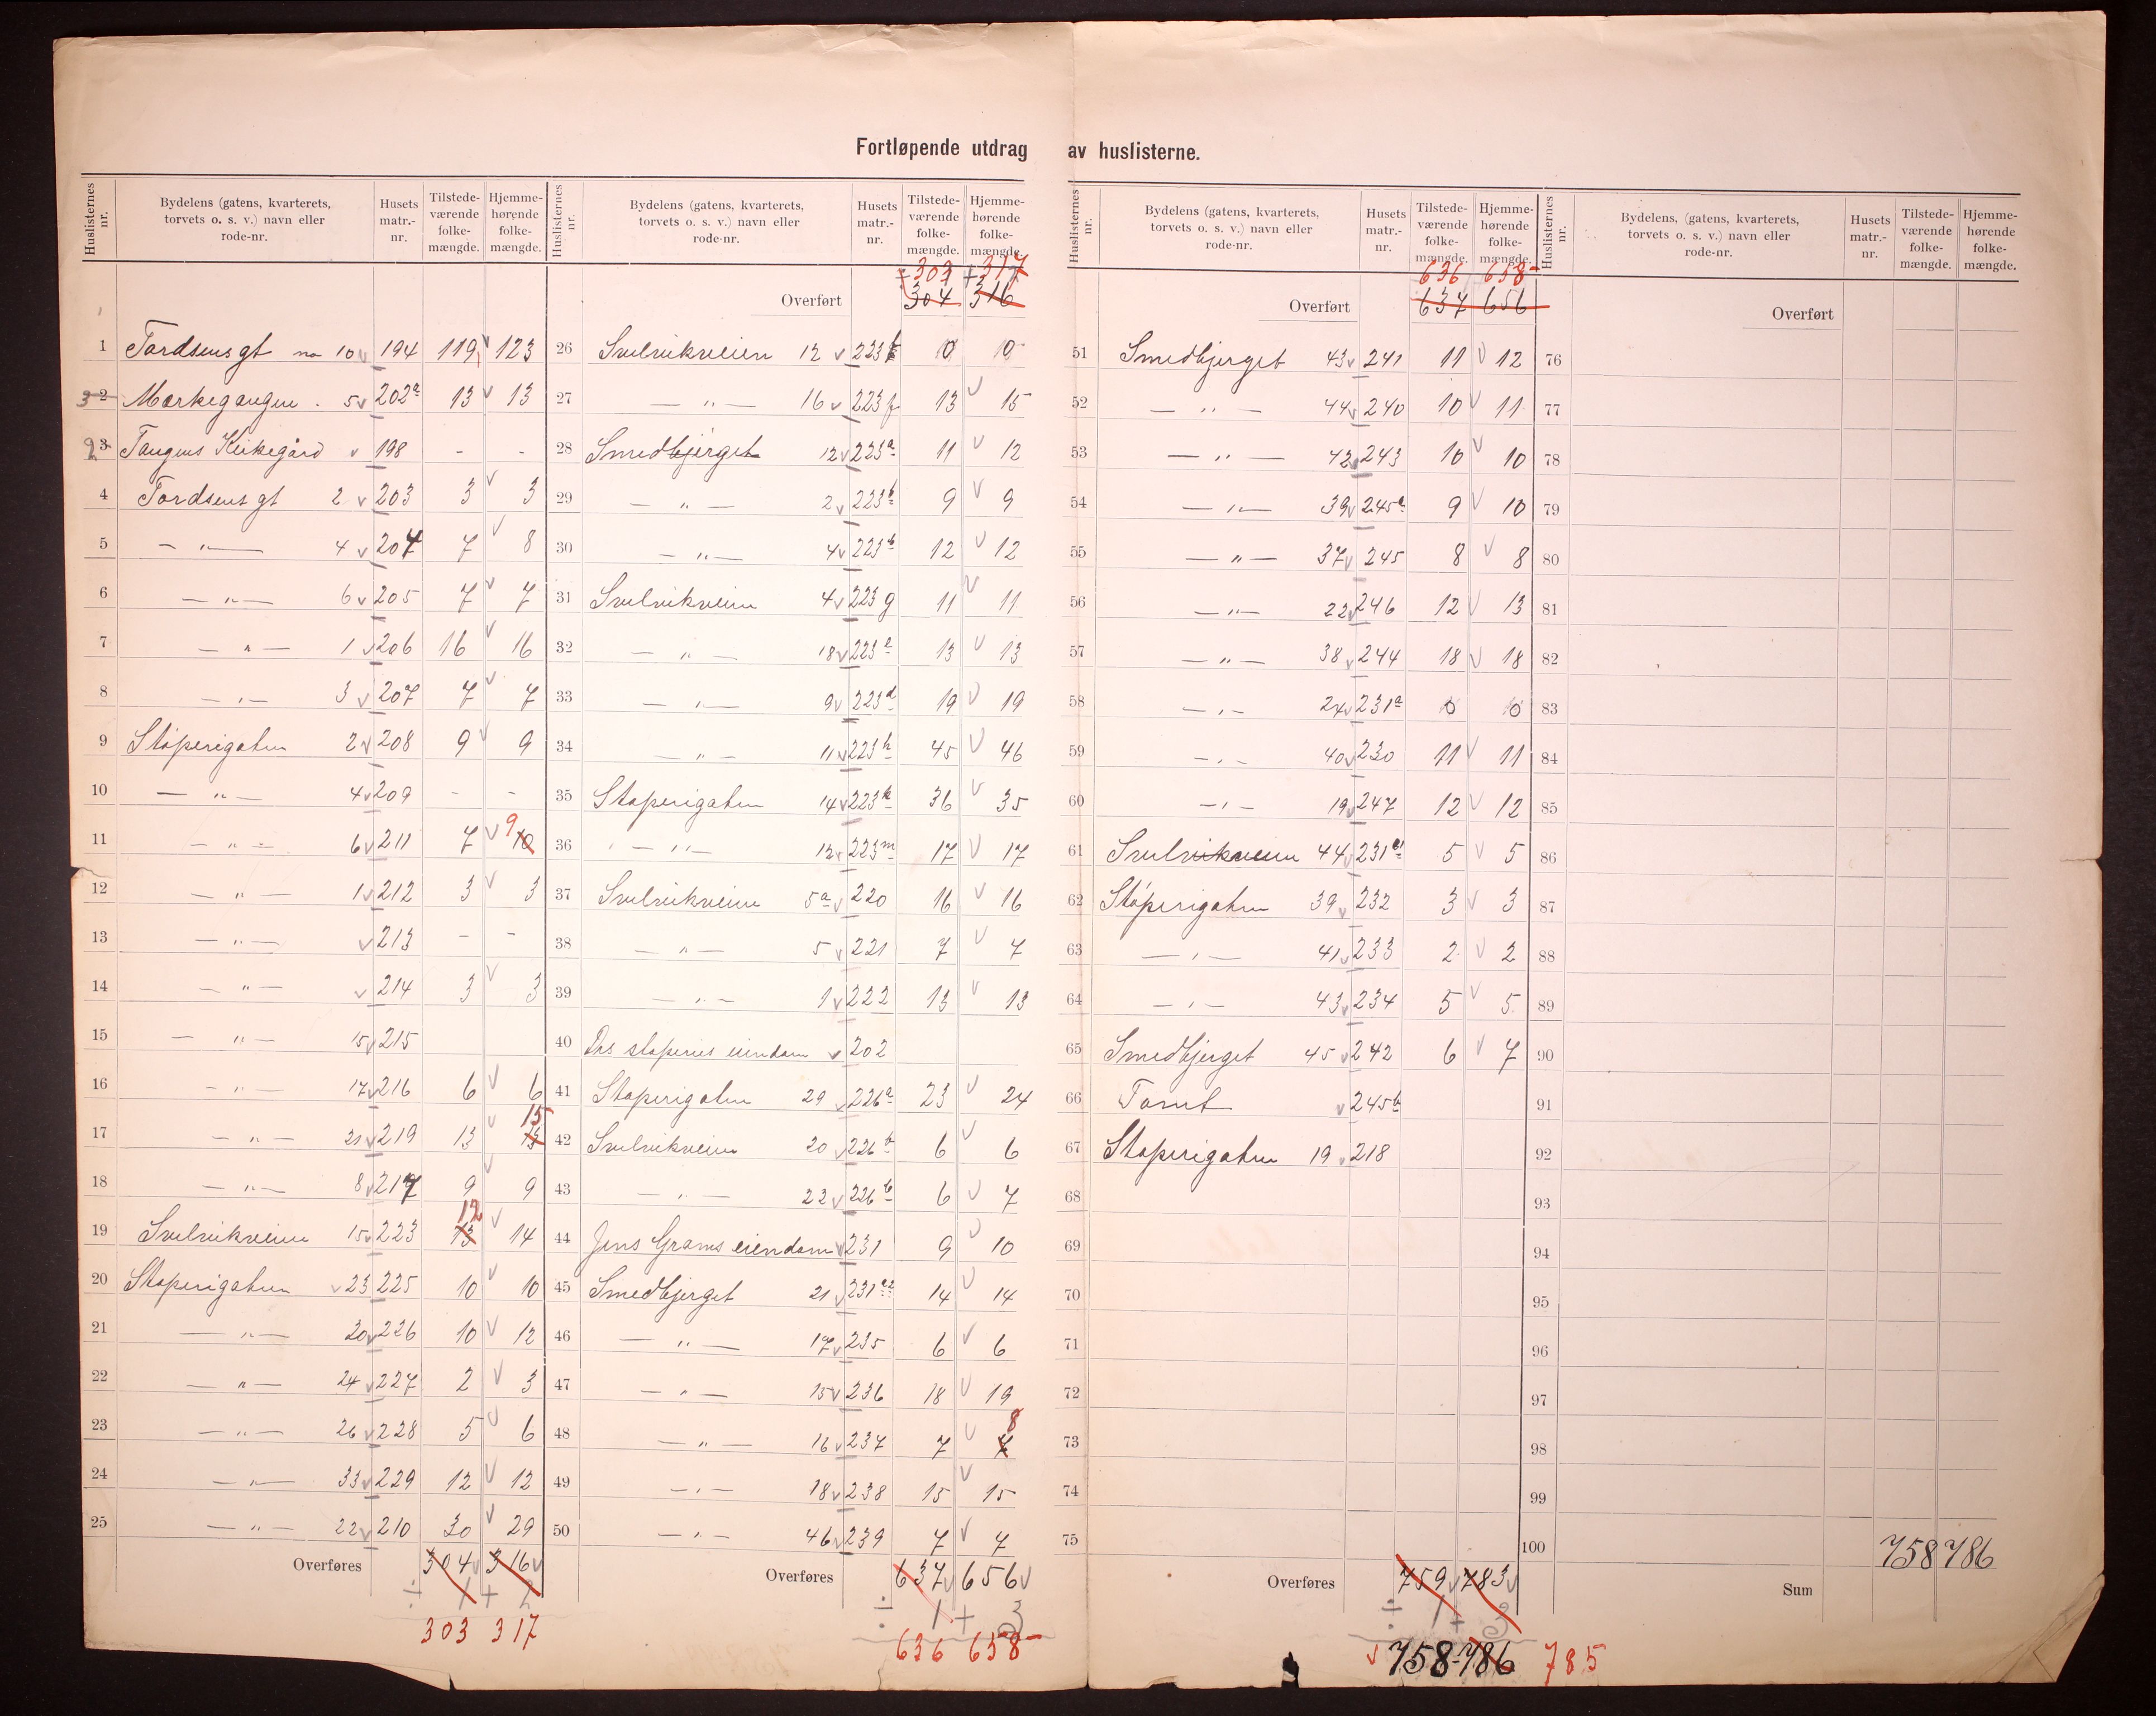 Fortløpende utdrag av huslisterne.
Huslisternes nr. | Bydelens (gatens, kvarterets, torvets o. s. v.) navn eller rode-nr. | Husets matr.-nr. | Tilstede-værende folke-mængde. | Hjemme-hørende folke-mængde.
1 Tordsens gt no 10 v 194 119 v 123
3 2 Markegangen 5 v 202a 13 v 13
2 3 Tangens Kirkegård v 198 - -
4 Tordsens gt 2 v 203 3 v 3
5 — " — 4 v 204 7 v 8
6 — " — 6 v 205 7 v 7
7 — " — 1 v 206 16 v 16
8 — " — 3 v 207 7 v 7
9 Støperigaten 2 v 208 9 v 9
10 — " — 4 v 209 - -
11 — " — 6 v 211 7 v 10 9
12 — " — 1 v 212 3 v 3
13 — " — v 213 - -
14 — " — v 214 3 v 3
15 — " — 15 v 215
16 — " — 17 v 216 6 v 6
17 — " — 21 v 219 13 v 15
18 — " — 8 v 217 9 v 9
19 Svelvikveien 15 v 223 13 12 v 14
20 Støperigaten v 23 225 10 v 10
21 — " — 20 v 226 10 v 12
22 — " — 24 v 227 2 v 3
23 — " — 26 v 228 5 v 6
24 — " — 33 v 229 12 v 12
25 — " — 22 v 210 30 v 29
Overføres 304 v 316 v
÷ 1 + 2
303 317
Huslisternes nr. | Bydelens (gatens, kvarterets, torvets o. s. v.) navn eller rode-nr. | Husets matr.-nr. | Tilstede-værende folke-mængde. | Hjemme-hørende folke-mængde.
÷ 303 + 317
Overført 304 316
26 Svelvikveien 12 v 223 10 10
27 — " — 16 v 223f 13 v 15
28 Smedbjerget 12 v 223a 11 v 12
29 — " — 2 v 223b 9 v 9
30 — " — 4 v 223b 12 v 12
31 Svelvikveien 4 v 223g 11 v 11
32 — " — 18 v 223e 13 v 13
33 — " — 9 v 223d 19 v 19
34 — " — 11 v 223h 45 v 46
35 Støperigaten 14 v 223k 36 v 35
36 — " — 12 v 223m 17 v 17
37 Svelvikveien 5a v 220 16 v 16
38 — " — 5 v 221 7 v 7
39 — " — 1 v 222 13 v 13
40 Drs støperies eiendom v 202
41 Støperigaten 29 v 226a 23 v 24
42 Svelvikveien 20 v 226b 6 v 6
43 — " — 22 v 226b 6 v 7
44 Jens Grams eiendom v 231 9 v 10
45 Smedbjerget 21 v 231 14 v 14
46 — " — 17 v 235 6 v 6
47 — " — 15 v 236 18 v 19
48 — " — 16 v 237 7 v 7 8
49 — " — 18 v 238 15 v 15
50 — " — 46 v 239 7 v 7
Overføres 637 v 656 v
÷ 1 + 2
636 658
Huslisternes nr. | Bydelens (gatens, kvarterets, torvets o. s. v.) navn eller rode-nr. | Husets matr.-nr. | Tilstede-værende folke-mængde. | Hjemme-hørende folke-mængde.
636 658
Overført 637 656
51 Smedbjerget 43 v 241 11 v 12
52 — " — 44 v 240 10 v 11
53 — " — 42 243 10 v 10
54 — " — 39 v 245a 9 v 10
55 — " — 37 v 245 8 v 8
56 — " — 22 v 246 12 v 13
57 — " — 38 v 244 18 v 18
58 — " — 24 v 231a 10 10
59 — " — 40 v 230 11 v 11
60 — " — 19 v 247 12 v 12
61 Svelvikveien 44 v 231 5 v 5
62 Støperigaten 39 v 232 3 v 3
63 — " — 41 v 233 2 v 2
64 — " — 43 v 234 5 v 5
65 Smedbjerget 45 v 242 6 v 7
66 Tomt v 245b
67 Støperigaten 19 v 218
68
69
70
71
72
73
74
75
Overføres 759 v 783 v
÷ 1 +
v 758 786 785
Huslisternes nr. | Bydelens, (gatens, kvarterets, torvets o. s. v.) navn eller rode-nr. | Husets matr.-nr. | Tilstede-værende folke-mængde. | Hjemme-hørende folke-mængde.
Overført
76
77
78
79
80
81
82
83
84
85
86
87
88
89
90
91
92
93
94
95
96
97
98
99
100 758 786
Sum